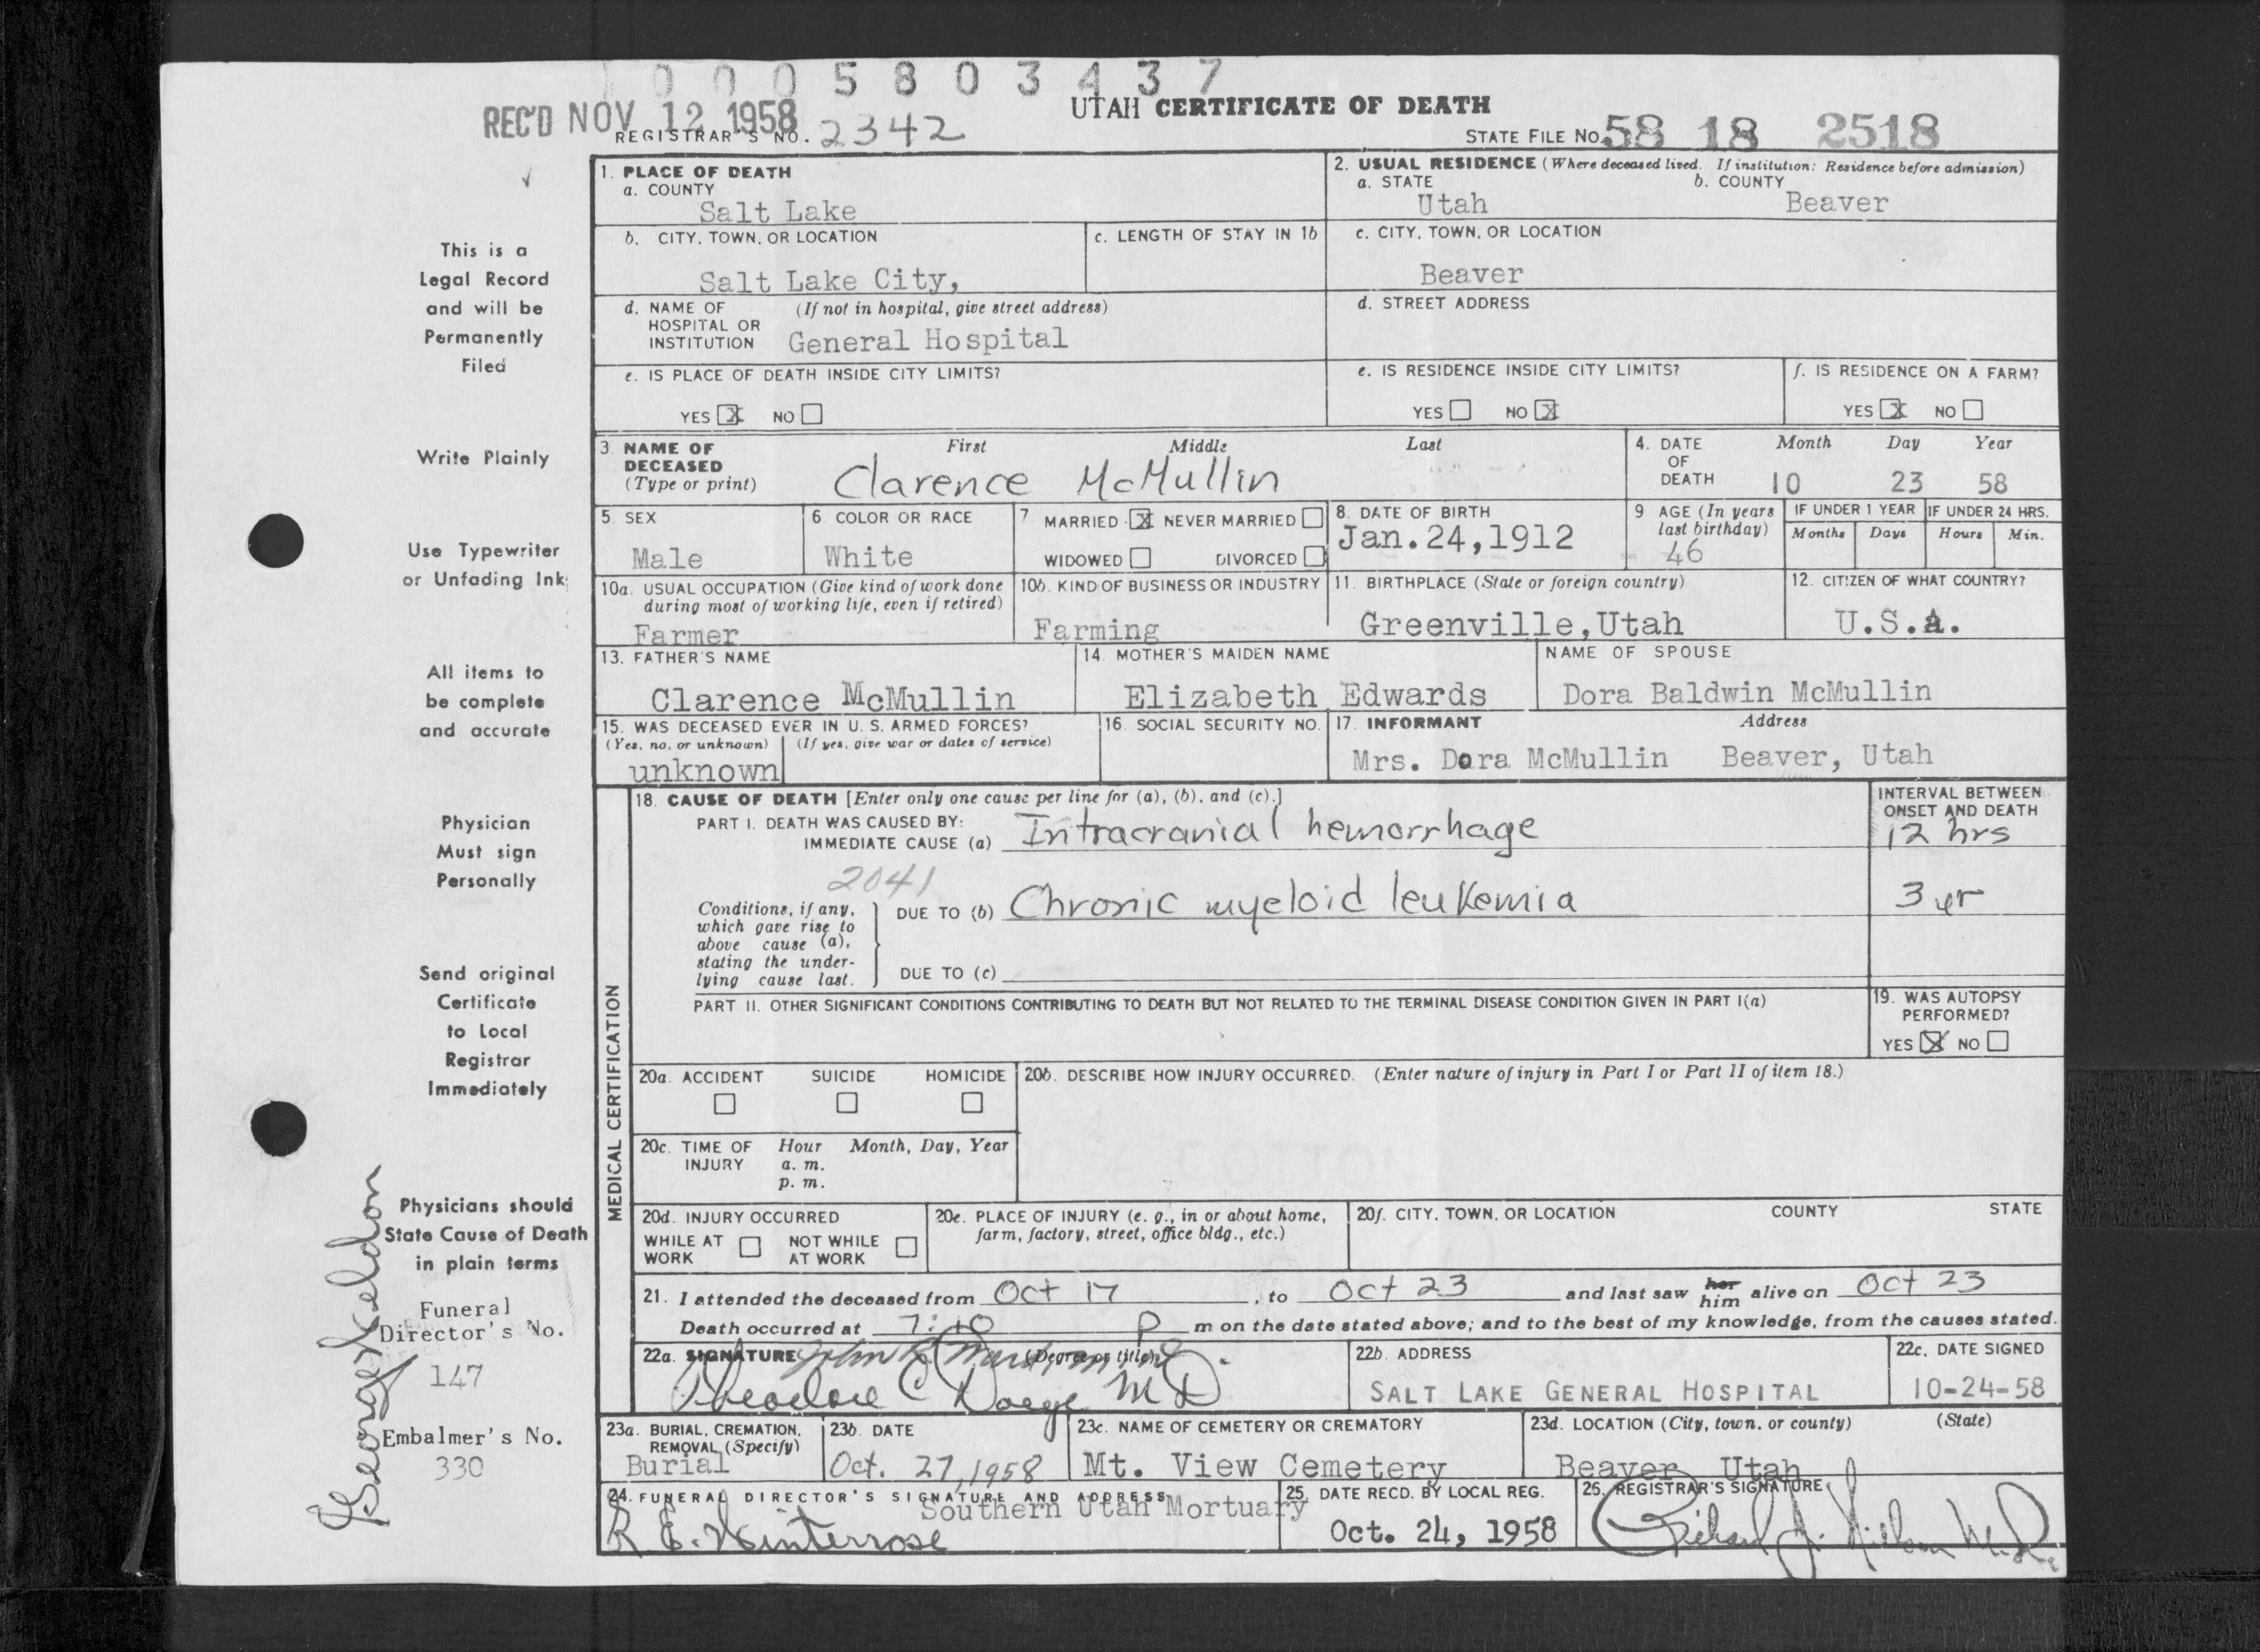 0 0 0 5 8 0 3 4 3 7
REC'D NOV 12 1958
UTAH CERTIFICATE OF DEATH
REGISTRAR'S NO. 2342
STATE FILE NO. 58 18 2518
1. PLACE OF DEATH
a. COUNTY
Salt Lake
2. USUAL RESIDENCE (Where deceased lived. If institution: Residence before admission)
a. STATE b. COUNTY
Utah Beaver
b. CITY, TOWN, OR LOCATION
Salt Lake City,
c. LENGTH OF STAY IN 1b
c. CITY, TOWN, OR LOCATION
Beaver
d. NAME OF HOSPITAL OR INSTITUTION (If not in hospital, give street address)
General Hospital
d. STREET ADDRESS
e. IS PLACE OF DEATH INSIDE CITY LIMITS?
YES X NO
e. IS RESIDENCE INSIDE CITY LIMITS?
YES NO X
f. IS RESIDENCE ON A FARM?
YES X NO
3. NAME OF DECEASED (Type or print)
First Middle Last
Clarence McMullin
4. DATE OF DEATH Month Day Year
10 23 58
5. SEX
Male
6. COLOR OR RACE
White
7. MARRIED X NEVER MARRIED
WIDOWED DIVORCED
8. DATE OF BIRTH
Jan.24,1912
9 AGE (In years last birthday)
46
IF UNDER 1 YEAR
Months Days
IF UNDER 24 HRS.
Hours Min.
10a. USUAL OCCUPATION (Give kind of work done during most of working life, even if retired)
Farmer
10b. KIND OF BUSINESS OR INDUSTRY
Farming
11. BIRTHPLACE (State or foreign country)
Greenville,Utah
12. CITIZEN OF WHAT COUNTRY?
U.S.A.
13. FATHER'S NAME
Clarence McMullin
14. MOTHER'S MAIDEN NAME
Elizabeth Edwards
NAME OF SPOUSE
Dora Baldwin McMullin
15. WAS DECEASED EVER IN U. S. ARMED FORCES?
(Yes, no, or unknown) (If yes, give war or dates of service)
unknown
16. SOCIAL SECURITY NO.
17. INFORMANT Address
Mrs. Dora McMullin Beaver, Utah
MEDICAL CERTIFICATION
18. CAUSE OF DEATH [Enter only one cause per line for (a), (b), and (c).]
PART I. DEATH WAS CAUSED BY:
IMMEDIATE CAUSE (a) Intracranial hemorrhage
INTERVAL BETWEEN ONSET AND DEATH
12 hrs
2041
Conditions, if any, which gave rise to above cause (a), stating the underlying cause last.
DUE TO (b) Chronic myeloid leukemia
3 yr
DUE TO (c)
PART II. OTHER SIGNIFICANT CONDITIONS CONTRIBUTING TO DEATH BUT NOT RELATED TO THE TERMINAL DISEASE CONDITION GIVEN IN PART I(a)
19. WAS AUTOPSY PERFORMED?
YES X NO
20a. ACCIDENT SUICIDE HOMICIDE
20b. DESCRIBE HOW INJURY OCCURRED. (Enter nature of injury in Part I or Part II of item 18.)
20c. TIME OF INJURY Hour Month, Day, Year
a. m.
p. m.
20d. INJURY OCCURRED
WHILE AT WORK NOT WHILE AT WORK
20e. PLACE OF INJURY (e. g., in or about home, farm, factory, street, office bldg., etc.)
20f. CITY, TOWN, OR LOCATION COUNTY STATE
21. I attended the deceased from Oct 17, to Oct 23 and last saw her him alive on Oct 23
Death occurred at 7:10 P m on the date stated above; and to the best of my knowledge, from the causes stated.
22a. SIGNATURE (Degree or title)
Theodore C Doege MD
22b. ADDRESS
SALT LAKE GENERAL HOSPITAL
22c. DATE SIGNED
10-24-58
23a. BURIAL, CREMATION, REMOVAL (Specify)
Burial
23b. DATE
Oct. 27, 1958
23c. NAME OF CEMETERY OR CREMATORY
Mt. View Cemetery
23d. LOCATION (City, town, or county) (State)
Beaver Utah
24. FUNERAL DIRECTOR'S SIGNATURE AND ADDRESS
Southern Utah Mortuary
R E. Winterrose
25. DATE RECD. BY LOCAL REG.
Oct. 24, 1958
26. REGISTRAR'S SIGNATURE
This is a
Legal Record
and will be
Permanently
Filed
Write Plainly
Use Typewriter
or Unfading Ink
All items to
be complete
and accurate
Physician
Must sign
Personally
Send original
Certificate
to Local
Registrar
Immediately
Physicians should
State Cause of Death
in plain terms
Funeral
Director's No.
147
Embalmer's No.
330